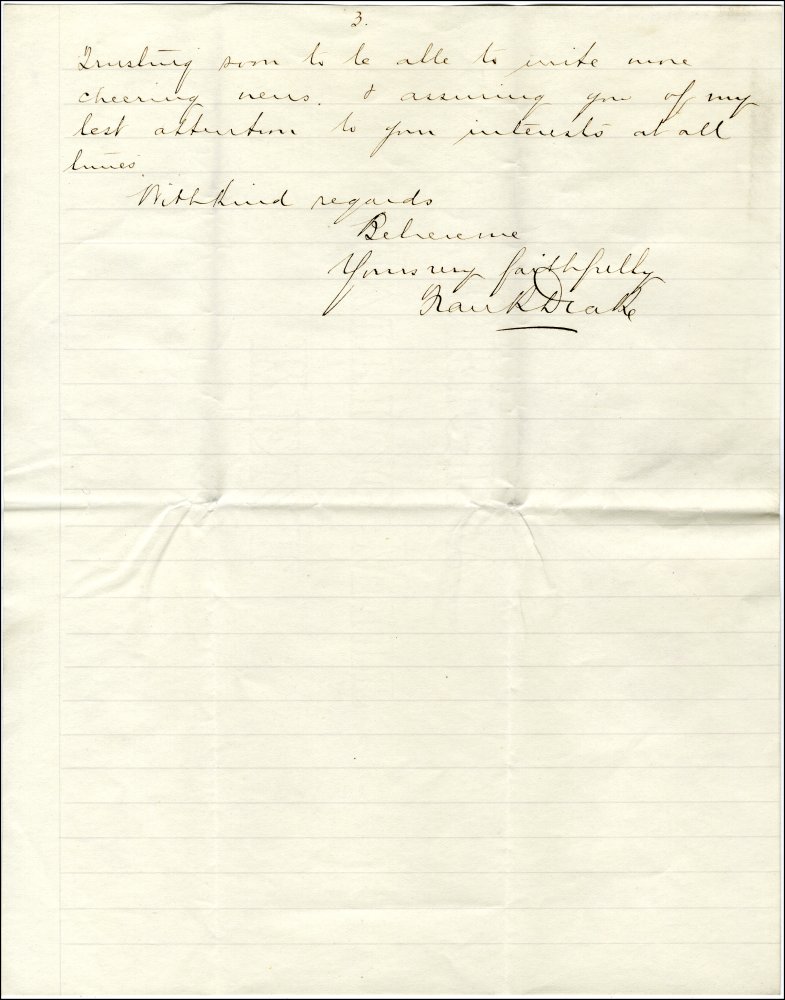 3.
Trusting soon to be able to write more
cheering news. & assuring you of my
best attention to your interests at all
times.
With kind regards
Believe me
Yours very faithfully
Frank Drake